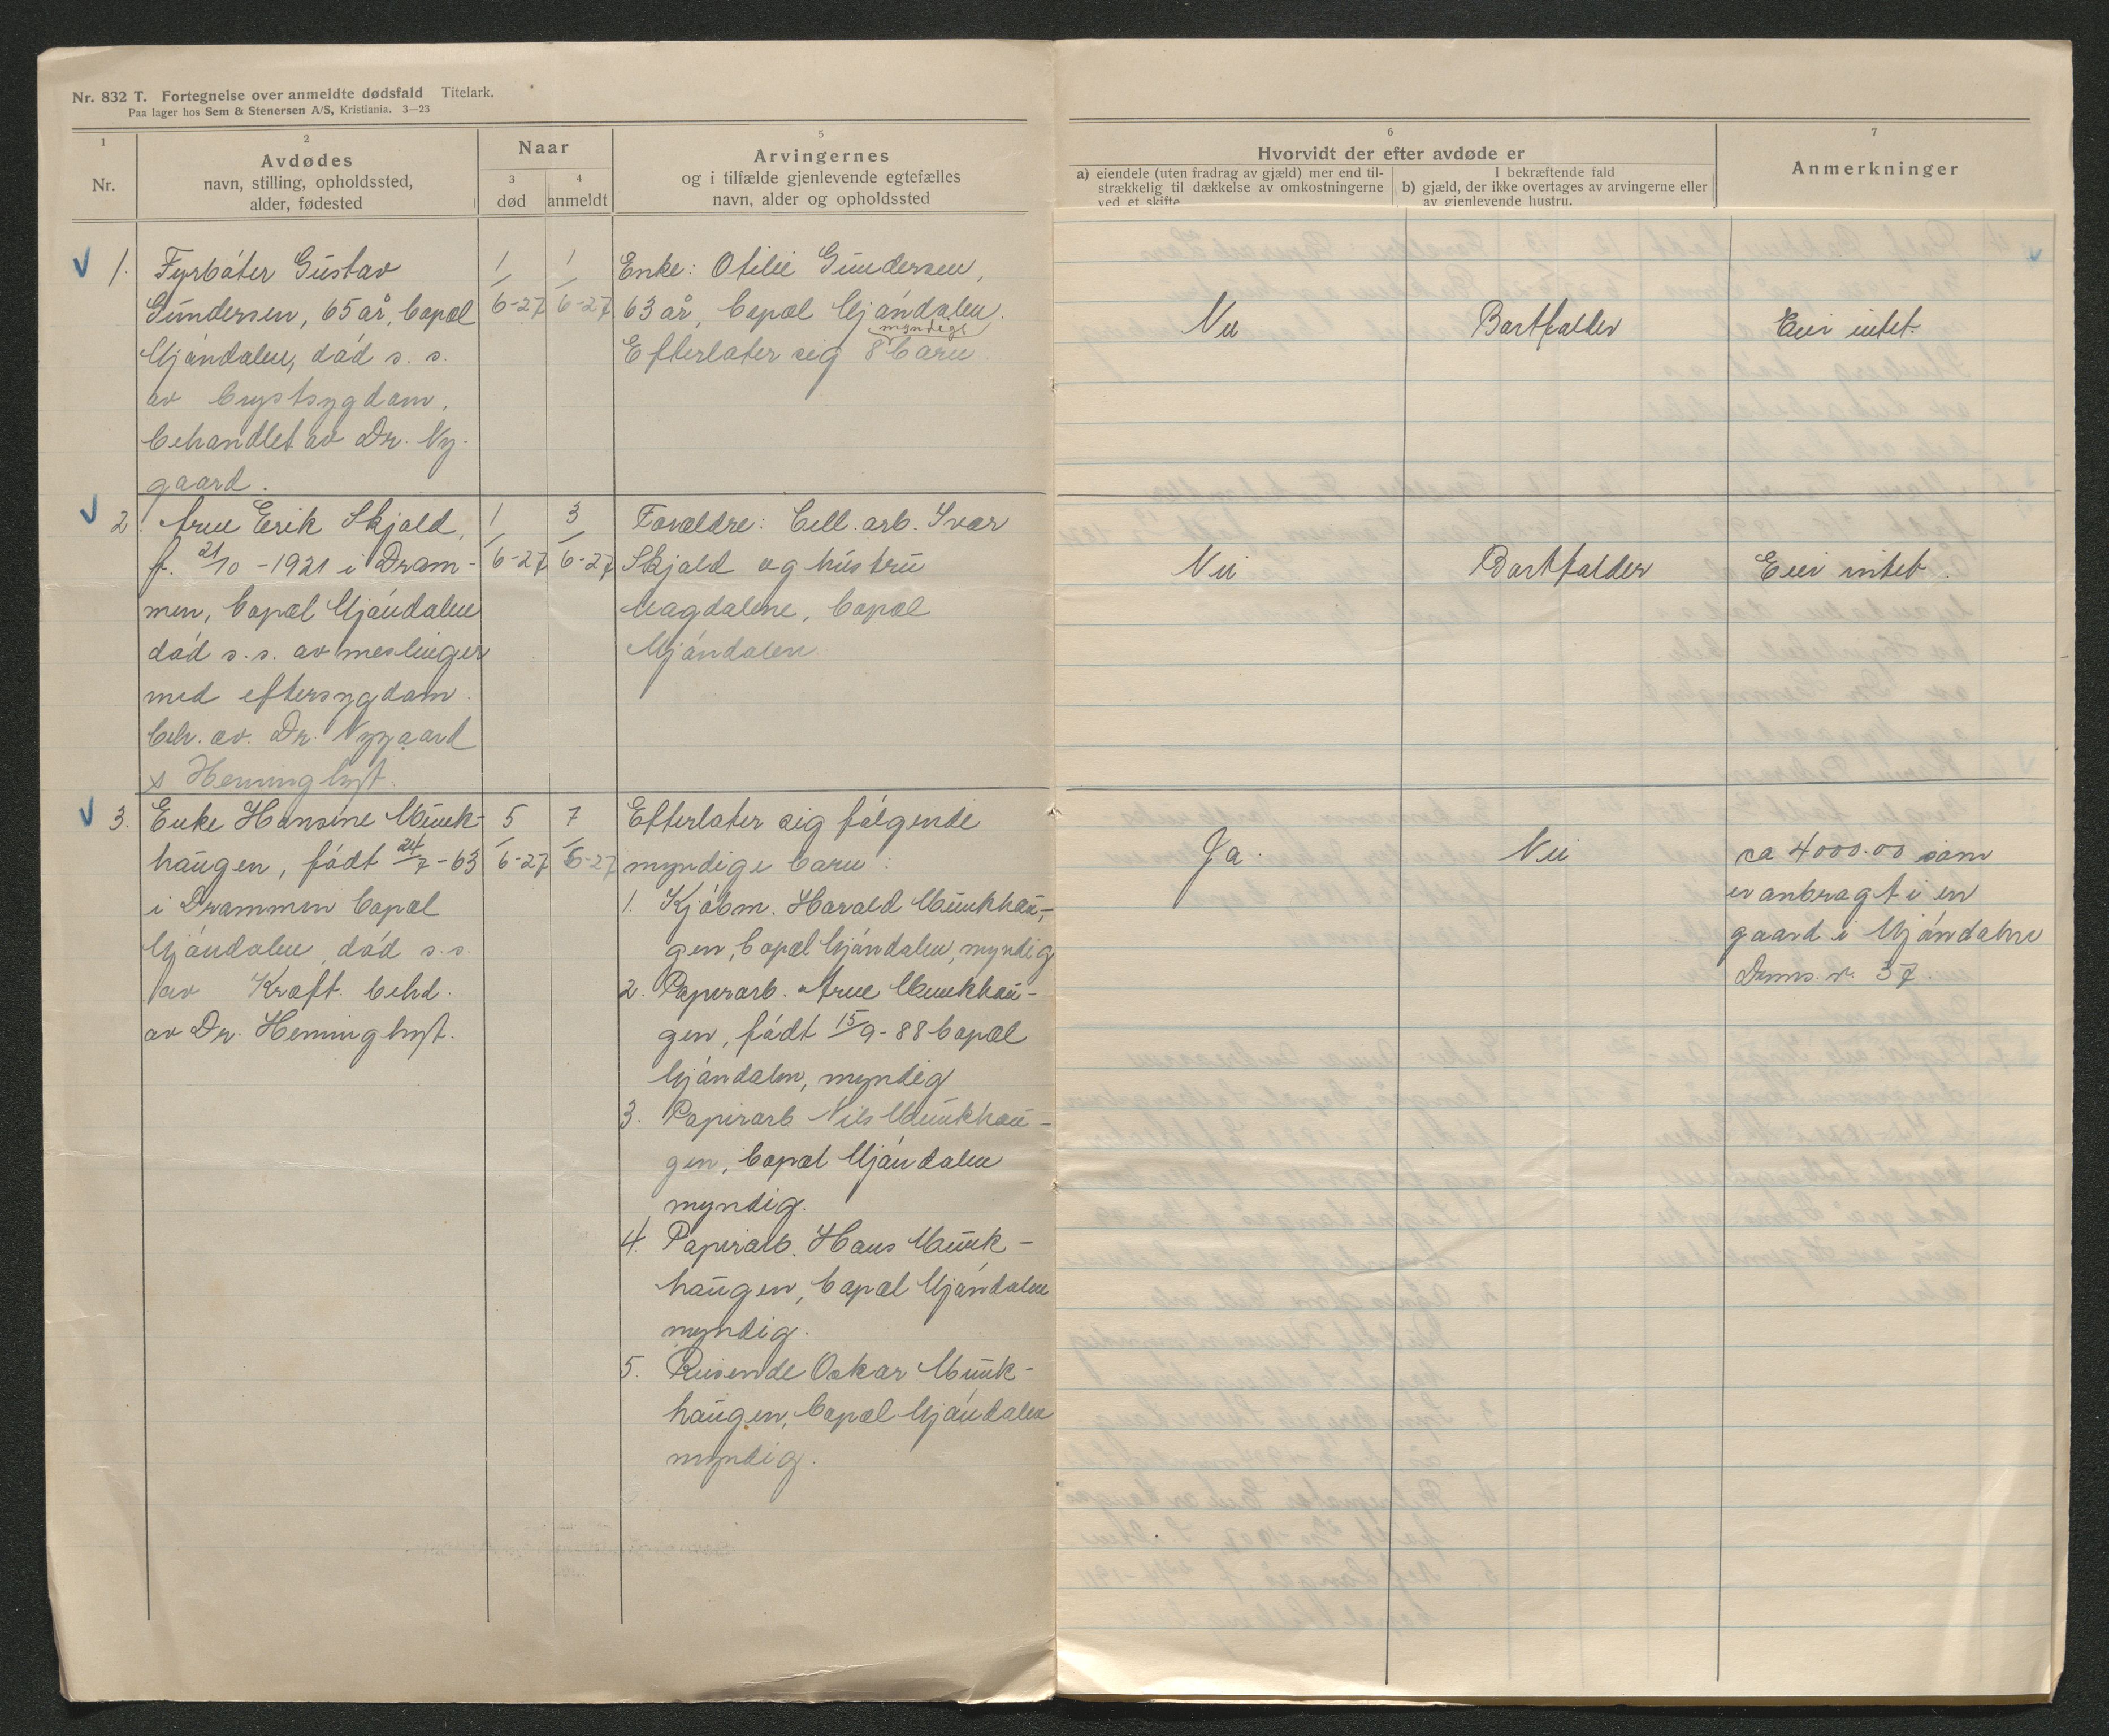 Nr. 832 T. Fortegnelse over anmeldte dødsfald Titelark.
Paa lager hos Sem & Stenersen A/S, Kristiania. 3—23
1
Nr.
2
Avdødes
navn, stilling, opholdssted,
alder, fødested
Naar
3
død
4
anmeldt
5
Arvingernes
og i tilfælde gjenlevende egtefælles
navn, alder og opholdssted
6
Hvorvidt der efter avdøde er
a) eiendele (uten fradrag av gjæld) mer end til-
strækkelig til dækkelse av omkostningerne
ved et skifte
I bekræftende fald
b) gjæld, der ikke overtages av arvingerne eller
av gjenlevende hustru.
7
Anmerkninger
1. Fyrbøter Gustav
Gundersen, 65 år, bopæl
Mjøndalen, død s. s.
av brystsygdom,
behandlet av Dr. Ny-
gaard.
1/6-27
1/6-27
Enke: Otilie Gundersen,
63 år, bopæl Mjøndalen.
myndige
Efterlater sig 8 barn.
Nei
Bortfalder
Eier intet.
2. Arne Erik Skjold,
f. 21/10 - 1921 i Dram-
men, bopæl Mjøndalen
død s. s. av meslinger
med eftersygdom.
beh. av. Dr. Nygaard
& Heminghyt.
1/6-27
3/6-27
Forældre: Cell. arb. Ivar
Skjold og hustru
Magdalene, bopæl
Mjøndalen
Nei
Bortfalder
Eier intet.
3. Enke Hansine Munk-
haugen, født 24/7 - 63
i Drammen bopæl
Mjøndalen, død s. s.
av Kræft. behd.
av Dr. Heminghyt.
5/6-27
7/6-27
Efterlater sig følgende
myndige barn:
1. Kjøbm. Harald Munkhau-
gen, bopæl Mjøndalen, myndig
2. Papirarb. Arne Munkhau-
gen, født 15/9 - 88 bopæl
Mjøndalen, myndig
3. Papirarb Nils Munkhau-
gen, bopæl Mjøndalen
myndig.
4. Papirarb. Hans Munk-
haugen, bopæl Mjøndalen
myndig.
5. Reisende Oskar Munk-
haugen, bopæl Mjøndalen
myndig.
Ja.
Nei
ca 4000.00 som
er anbragt i en
gaard i Mjøndalen
37.